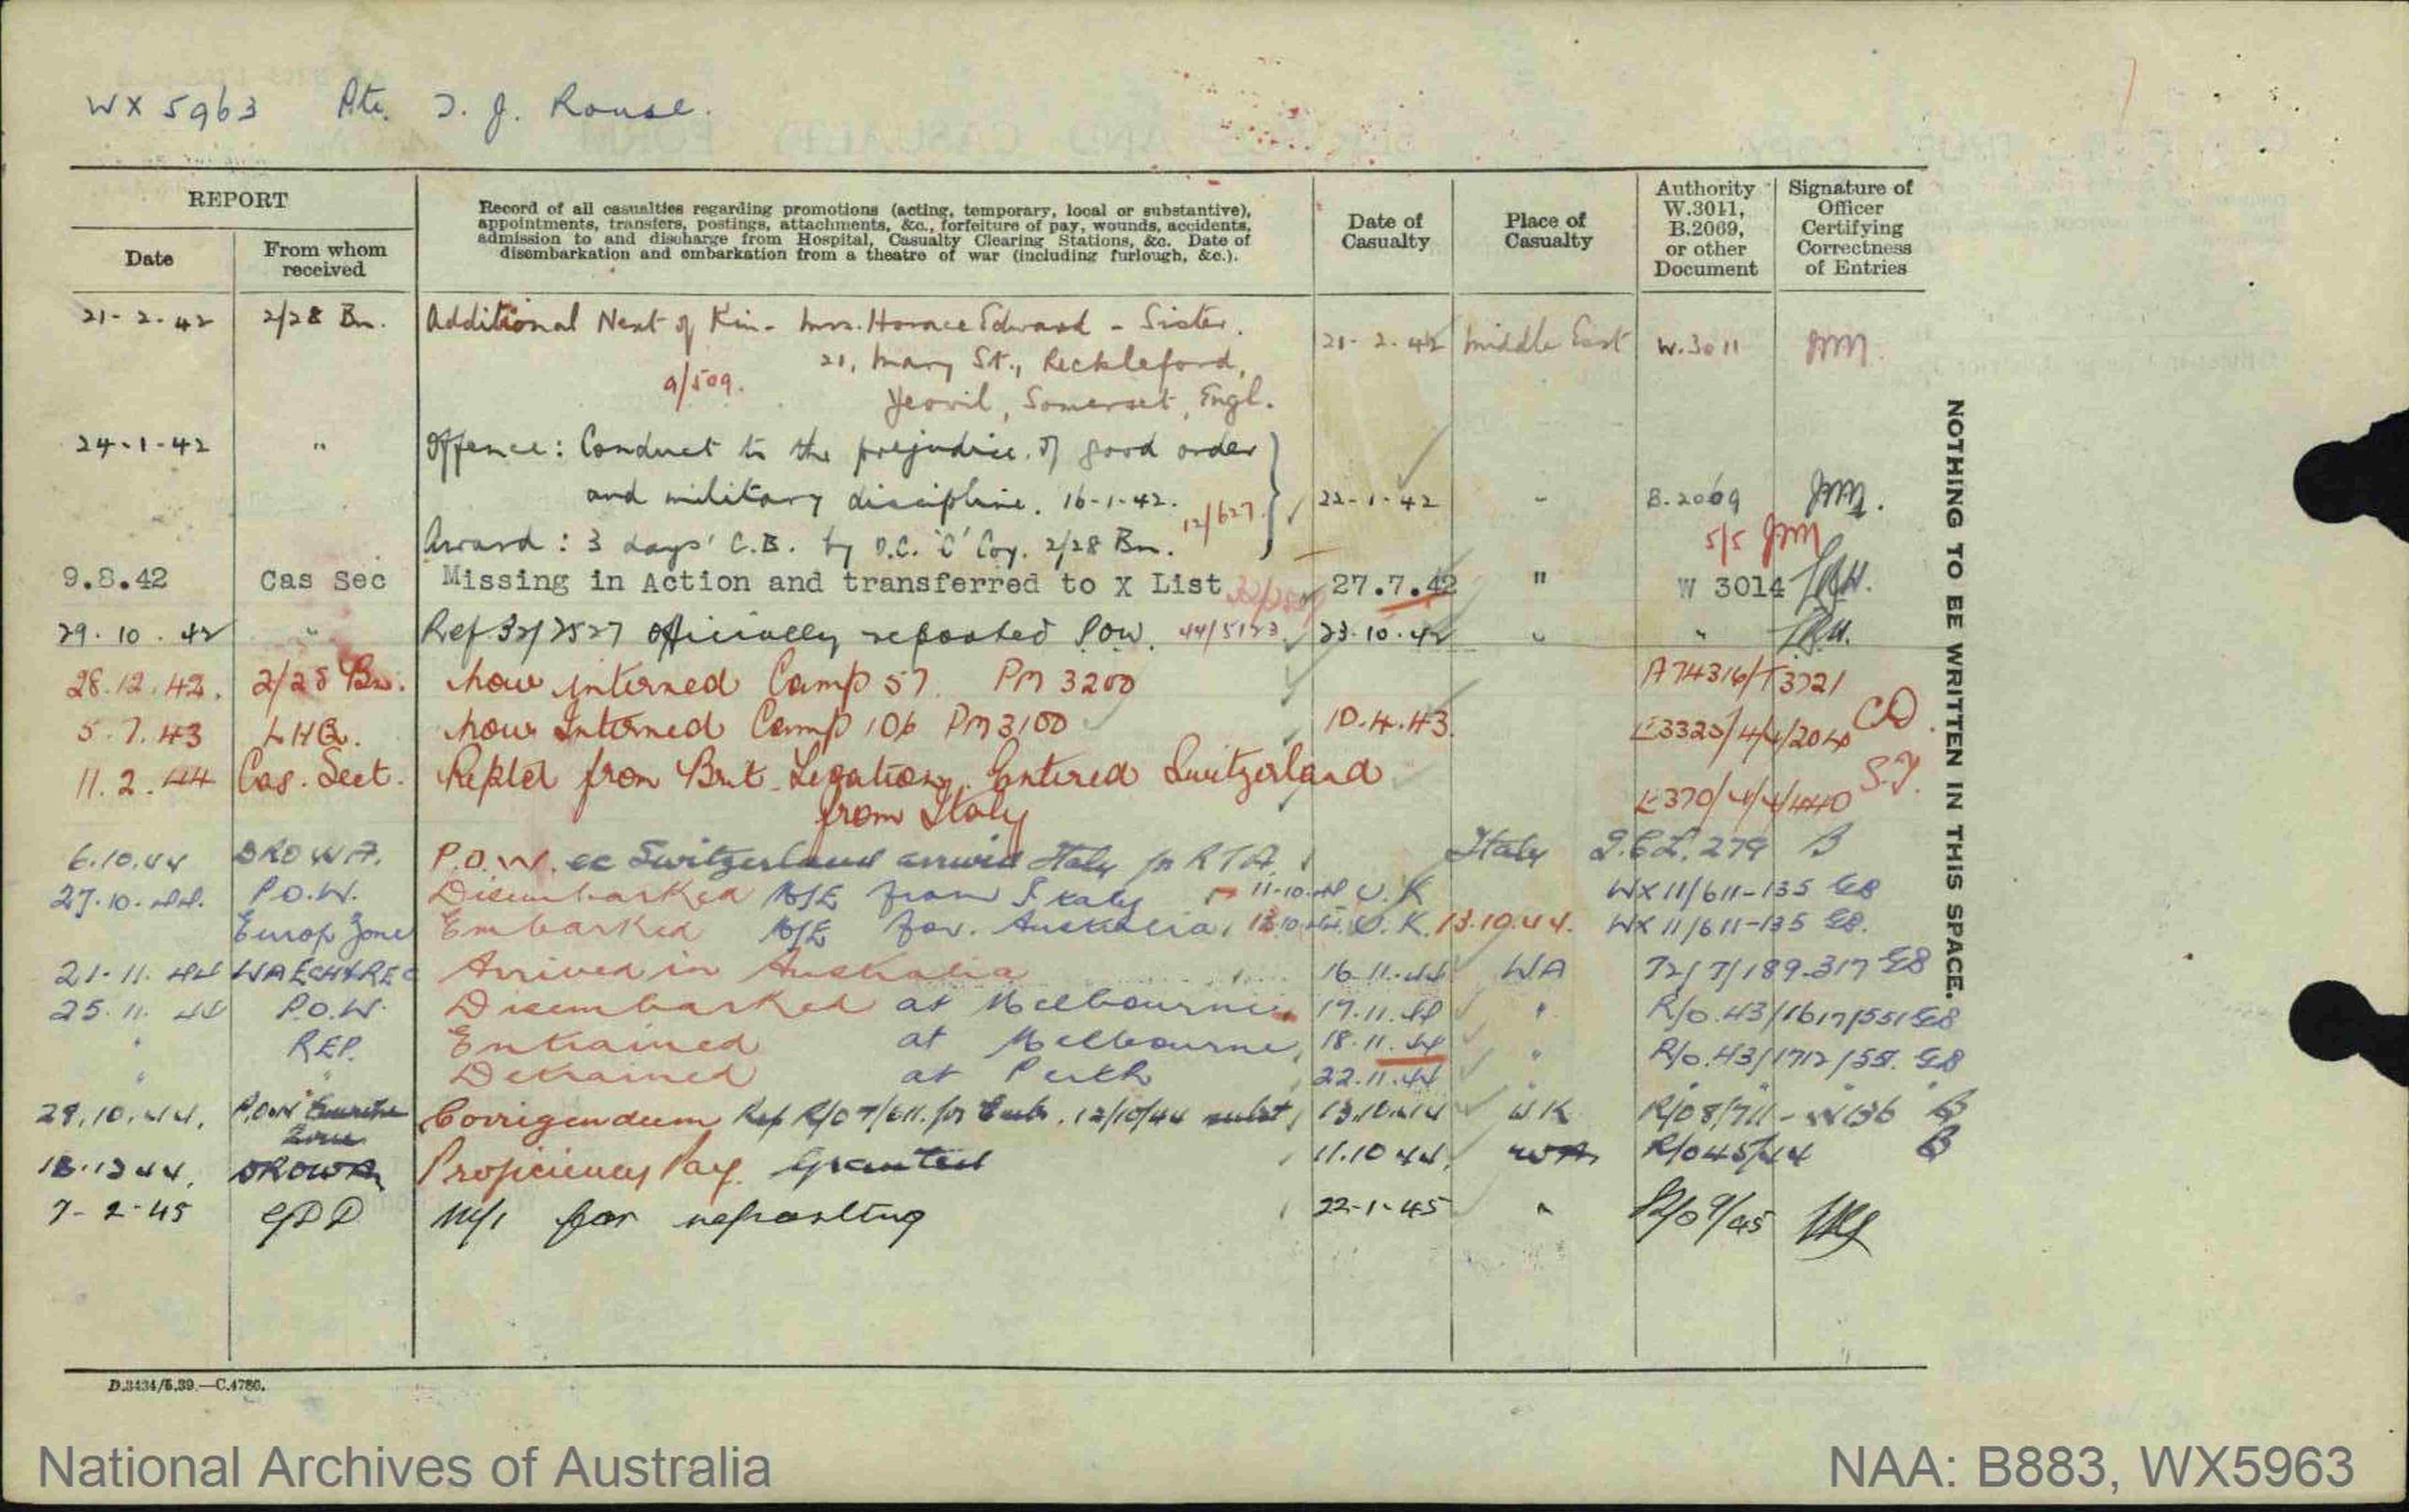 WX 5963 Pte. J. J. Rouse.
REPORT
Date
From whom received
Record of all casualties regarding promotions (acting, temporary, local or substantive),
appointments, transfers, postings, attachments, &c., forfeiture of pay, wounds, accidents,
admission to and discharge from Hospital, Casualty Clearing Stations, &c. Date of
disembarkation and embarkation from a theatre of war (including furlough, &c.).
Date of Casualty
Place of Casualty
Authority W.3011, B.2069, or other Document
Signature of Officer Certifying Correctness of Entries
21-2-42 2/28 Bn. Additional Next of Kin - Mrs. Horace Edward - Sister. 21-2-42 Middle East W.3011
21, Mary St., Reckleford,
9/509.
Yeovil, Somerset, Engl.
24-1-42 " Offence: Conduct to the prejudice of good order
and military discipline. 16-1-42. 12/627 22-1-42 " B.2069
Award: 3 days' C.B. by O.C. 'C' Coy. 2/28 Bn. 5/5
9.8.42 Cas Sec Missing in Action and transferred to X List 27.7.42 " W 3014
29.10.42 " Ref 32/2527 officially reported POW. 44/5123 23.10.42 " "
28.12.42. 2/28 Bn. Now interned Camp 57. PM 3200 A74316/T3721
5.7.43 LHQ. Now Interned Camp 106 PM 3100 10.4.43. L3325/4/4/2040 CD
11.2.44 Cas. Sect. Repltd from Brit. Legation. Entered Switzerland
from Italy L370/4/4/4440 S.J.
6.10.44 DROWA. P.O.W. ex Switzerland arrived Italy for RTA. Italy 279 B
27.10.44. P.O.W. Disembarked M/E from Italy 11.10.44 U.K WX11/611-135 GB
Europ Zone Embarked M/E for Australia. 13.10.44. U.K. 13.10.44. WX11/611-135 GB.
21.11.44 WAECH&REC Arrived in Australia 16.11.44 WA 72/7/189.317 GB
25.11.44 P.O.W. Disembarked at Melbourne, 17.11.44 " R/O.43/1617/551 GB
" REP. Entrained at Melbourne, 18.11.44 " R/O.43/1712/551. GB
" " Detrained at Perth 22.11.44 " " "
28.10.44. P.O.W. Zone Corrigendum Ref R/O 7/611. for Emb. 12/10/44 subst 13.10.44 UK R/O 8/711 - W136 B
18.12.44. DROWA Proficiency Pay Granted 11.10.44. WA R/O 45/44 B
7-2-45 GDD M/I for reposting 22-1-45 " R/O 9/45
NOTHING TO BE WRITTEN IN THIS SPACE.
D.3434/5.39.—C.4786.
National Archives of Australia
NAA: B883, WX5963